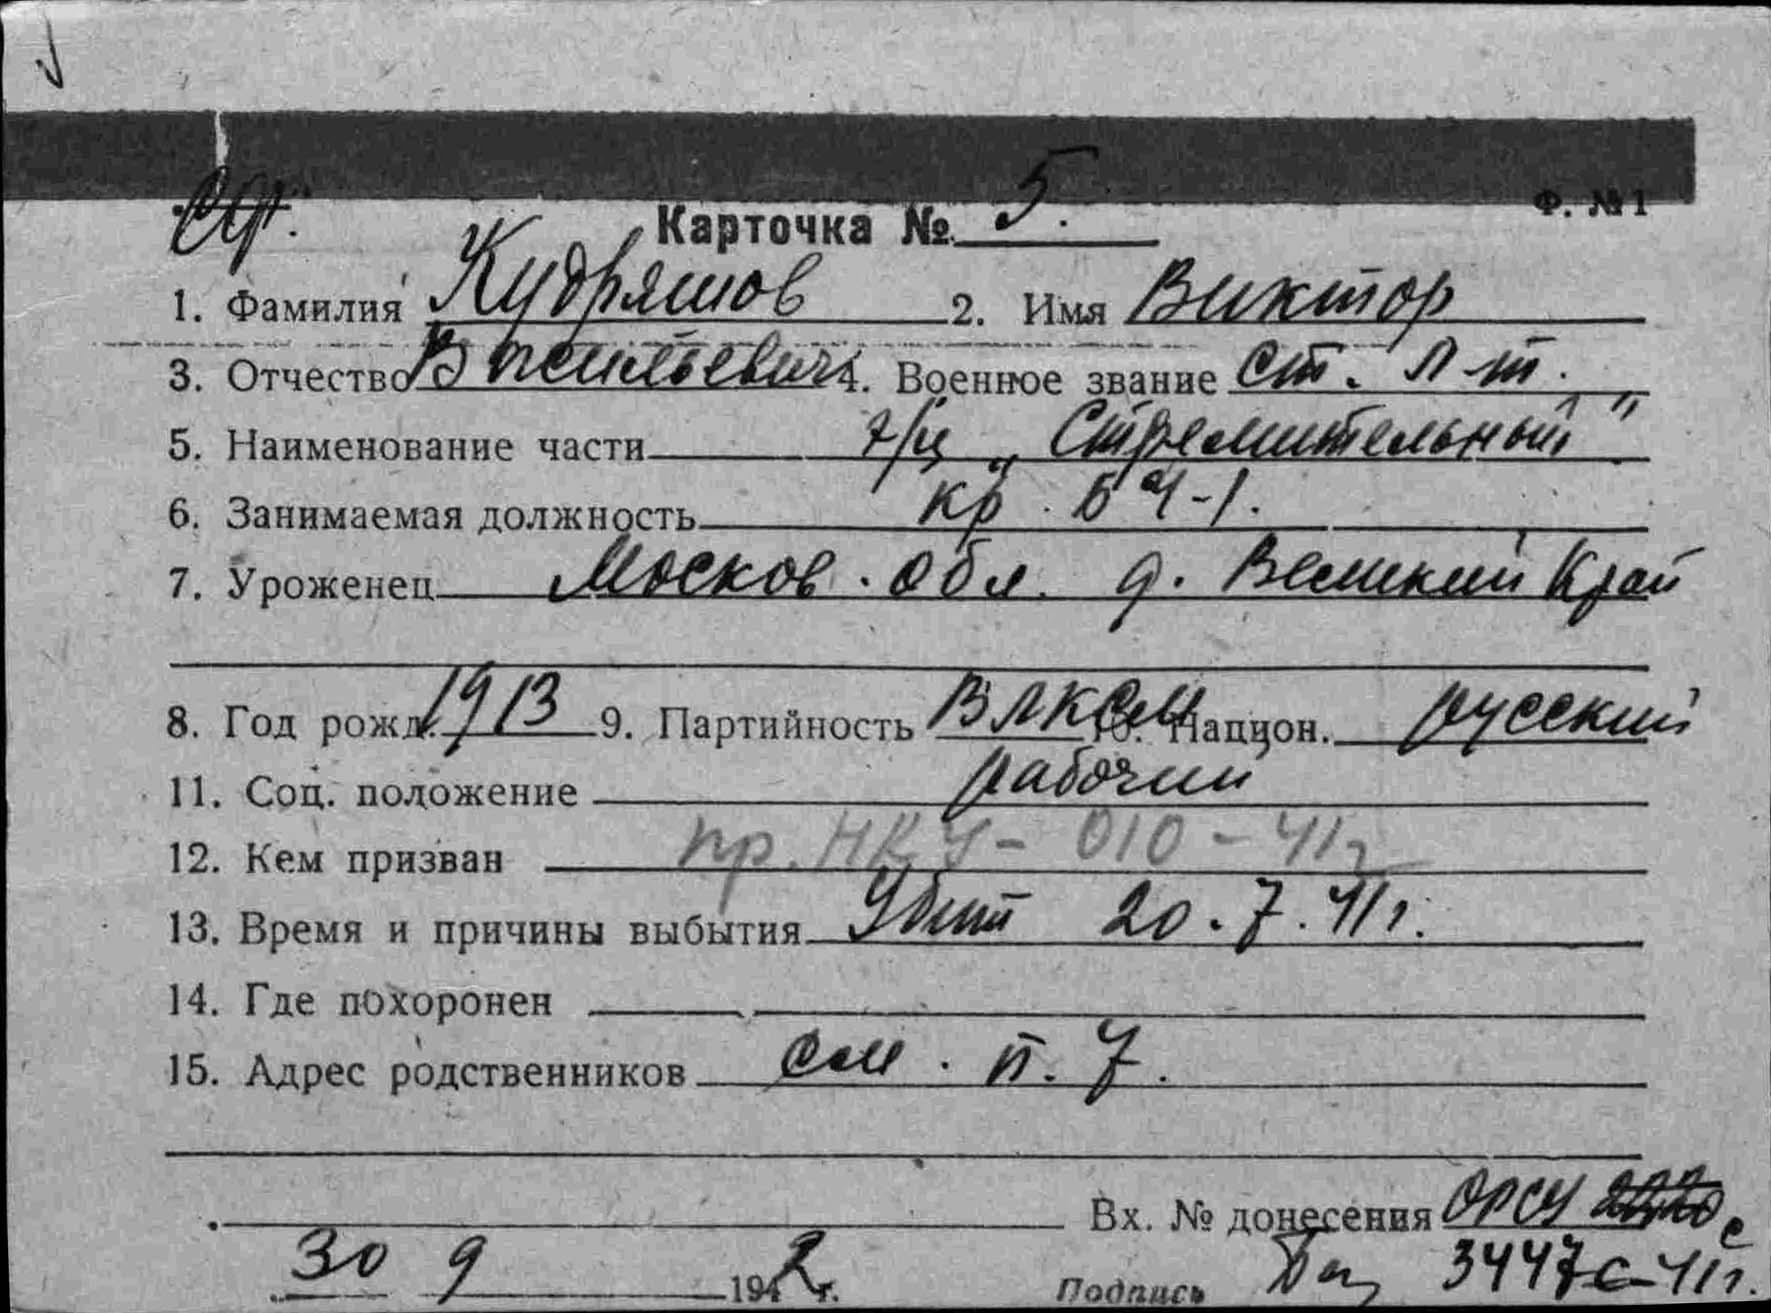 Ф. № 1
Карточка № 5.
1. Фамилия Кудряшов 2. Имя Виктор
3. Отчество Васильевич 4. Военное звание ст. л-т.
5. Наименование части э/м „Стремительный"
6. Занимаемая должность кр. БЧ-1.
7. Уроженец Москов. обл. д. Великий Край
8. Год рожд. 1913 9. Партийность ВЛКСМ 10. Национ. русский
11. Соц. положение рабочий
12. Кем призван пр. НКУ - 010 - 41г
13. Время и причины выбытия Убит 20.7.41г.
14. Где похоронен
15. Адрес родственников см. п. 7.
Вх. № донесения ОРСУ
30 9 1942 г. Подпись 3447с-41г.